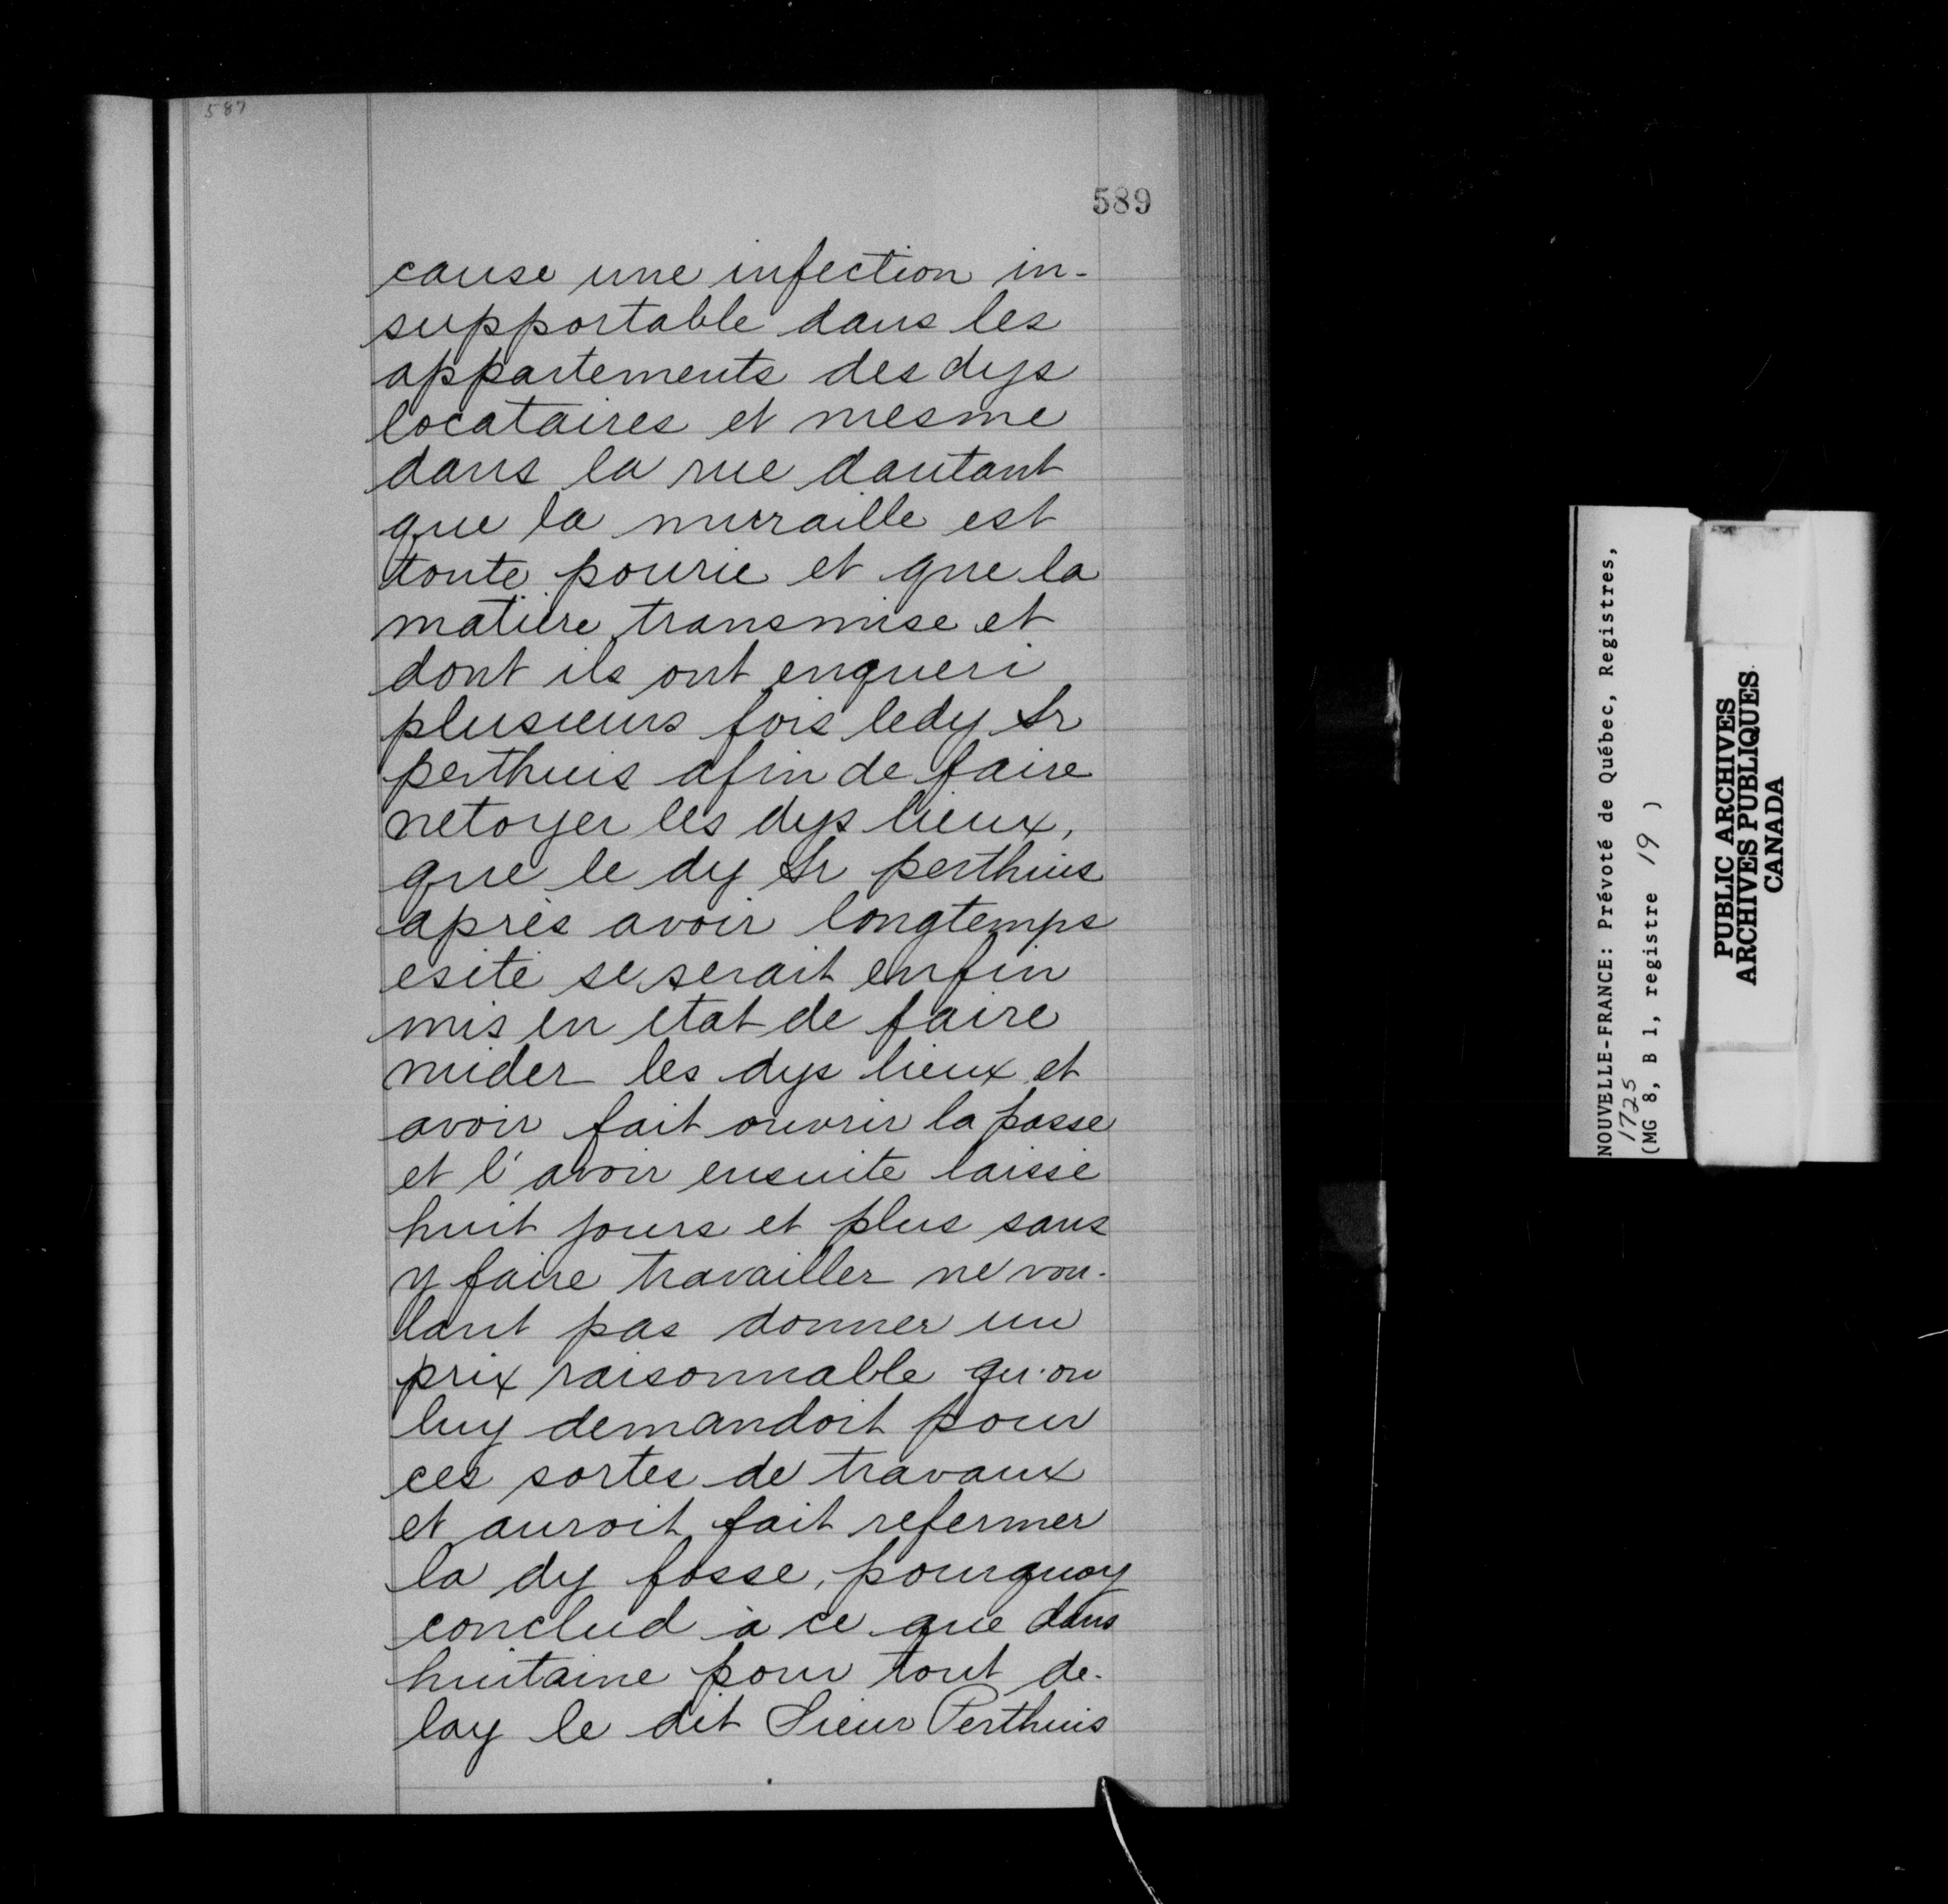 587
589
cause une infection in-
supportable dans les
appartements des dys
locataires et mesme
dans la rue dautant
que la murraille est
toute pourie et que la
matière transmise et
dont ils ont enqueri
plusieurs fois ledy Sr
perthuis afin de faire
netoyer les dys lieux,
que le dy Sr perthuis
après avoir longtemps
esité se serait enfin
mis en etat de faire
nuider les dys lieux et
avoir fait ouvrir la fosse
et l'avoir ensuite laissé
huit jours et plus sans
y faire travailler ne vou-
lant pas donner un
prix raisonnable qu'on
luy demandoit pour
ces sortes de travaux
et auroit fait refermer
la dy fosse, pourquoy
conclud à ce que dans
huitaine pour tout de-
lay le dit Sieur Perthuis
NOUVELLE-FRANCE: Prévoté de Québec, Registres,
1725
(MG 8, B 1, registre 19 )
PUBLIC ARCHIVES
ARCHIVES PUBLIQUES
CANADA